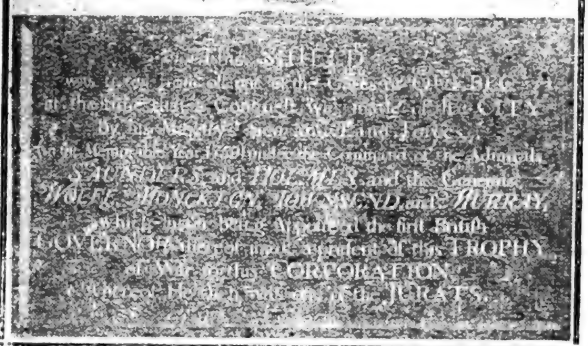 This SHIELD
was from one of the Gates of QUEBEC
at the time that a Conquest was made of the CITY
By his Majesty's and Forces
In the Memorable Year 1759 under the Command of the Admirals
SAUNDERS and HOLMES and the Generals
WOLFE, MONCKTON, TOWNSEND, and MURRAY,
which being Appointed the first British
GOVERNOR thereof made a present of this TROPHY
of War to this CORPORATION,
whereof He one of the JURATS.